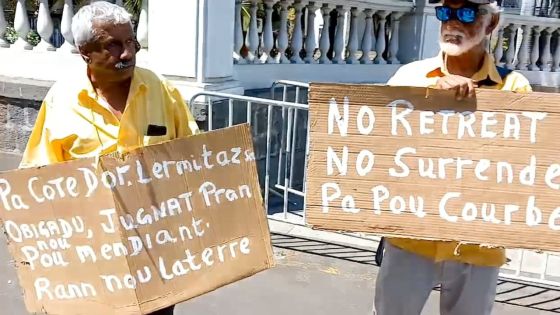 Pa Cote D'or. Lermitaz
OBIGADU, JUGNAT Pran
nou
Pou mendiant.
Rann nou Laterre
No Retreat
No Surrende
Pa Pou Courb